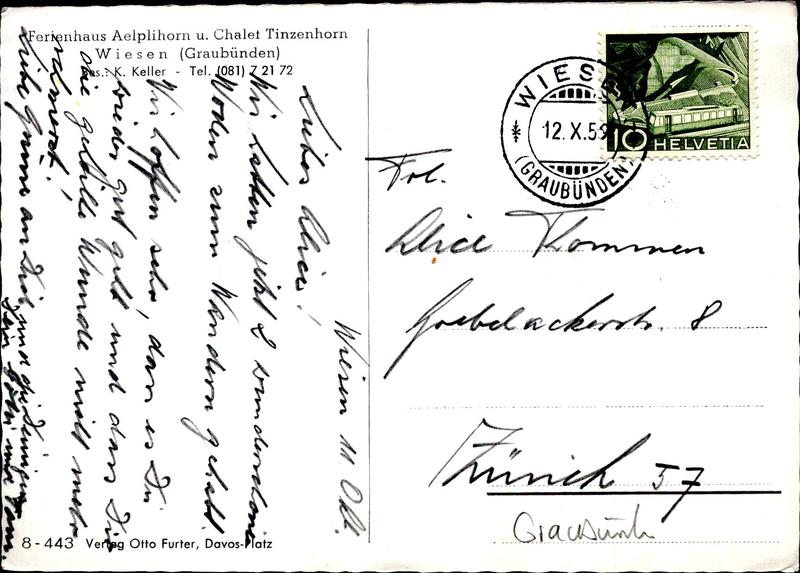 Ferienhaus Aelplihorn u. Chalet Tinzenhorn
Wiesen (Graubünden)
Bes.: K. Keller - Tel. (081) 7 21 72
Wiesen 11. Okt.
Liebes Alice!
Wir hatten jetzt 2 wundervolle
Wochen zum Wandern gehabt.
Wir hoffen sehr, dass es Dir
wieder gut geht und dass Dir
die geheilte Wunde nicht mehr
Liebe Grüsse an Dich und die Deinigen
8 - 443 Verlag Otto Furter, Davos-Platz
WIESEN
12. X. 59
(GRAUBÜNDEN)
10 HELVETIA
Frl.
Alice Kommen
Goebelackerstr. 8
Zürich 57
Graubünden